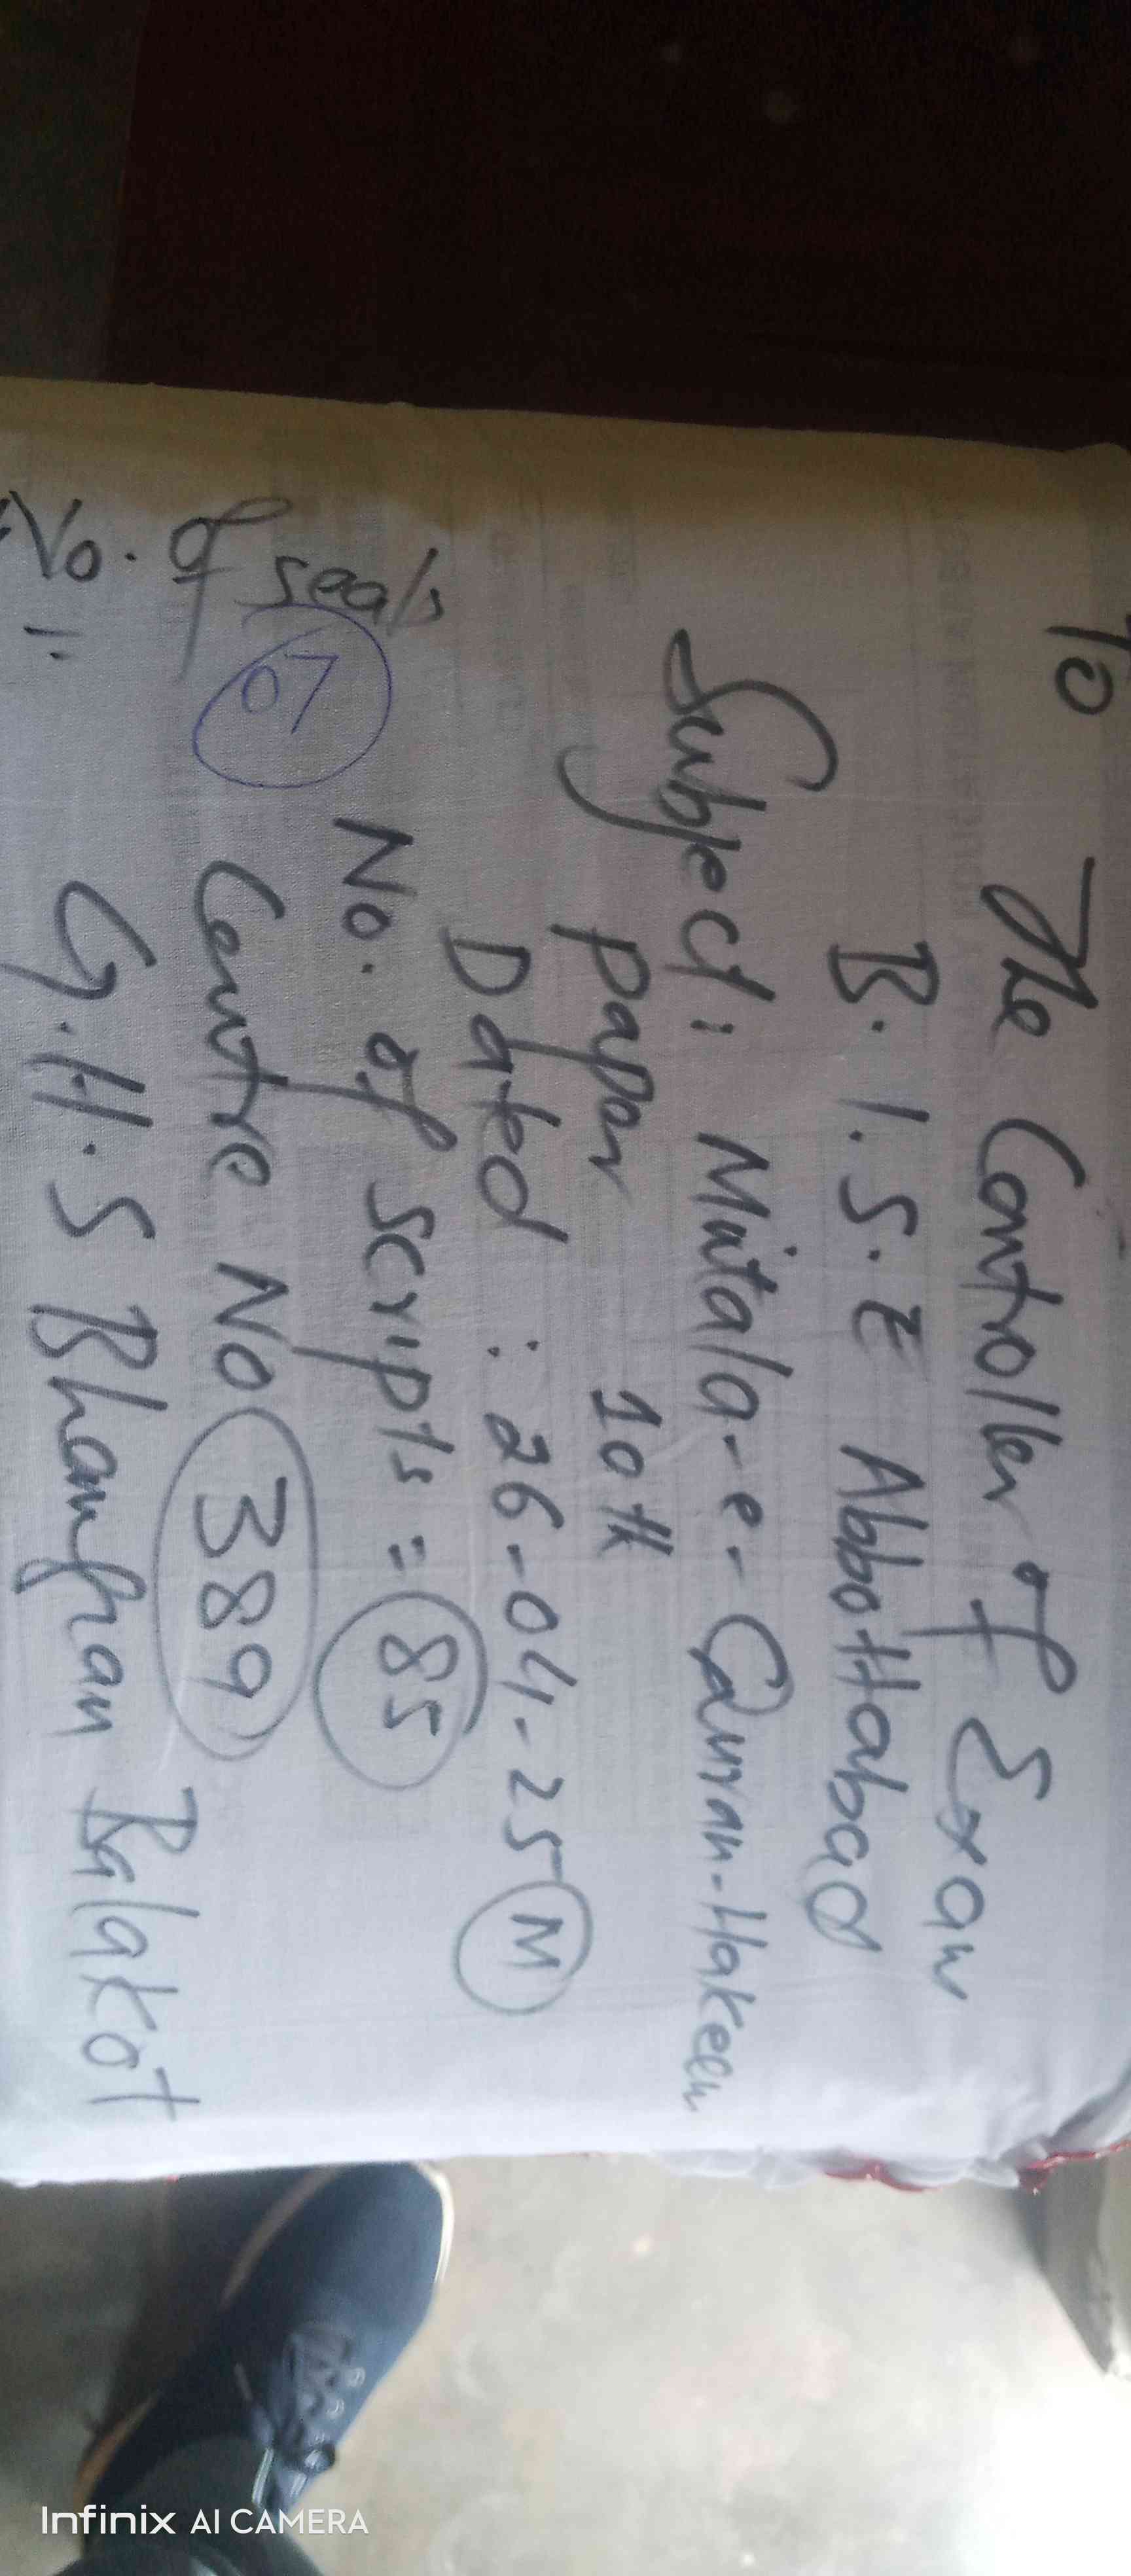 To
The Controller of Exam
B.I.S.E Abbottabad
Subject: Mutala-e-Quran-Hakeem
Paper 10th
Dated : 26-04-25 M
No. of scripts = 85
Centre No 389
G.H.S Bhangian Balakot
No. of seals
07
Infinix AI CAMERA